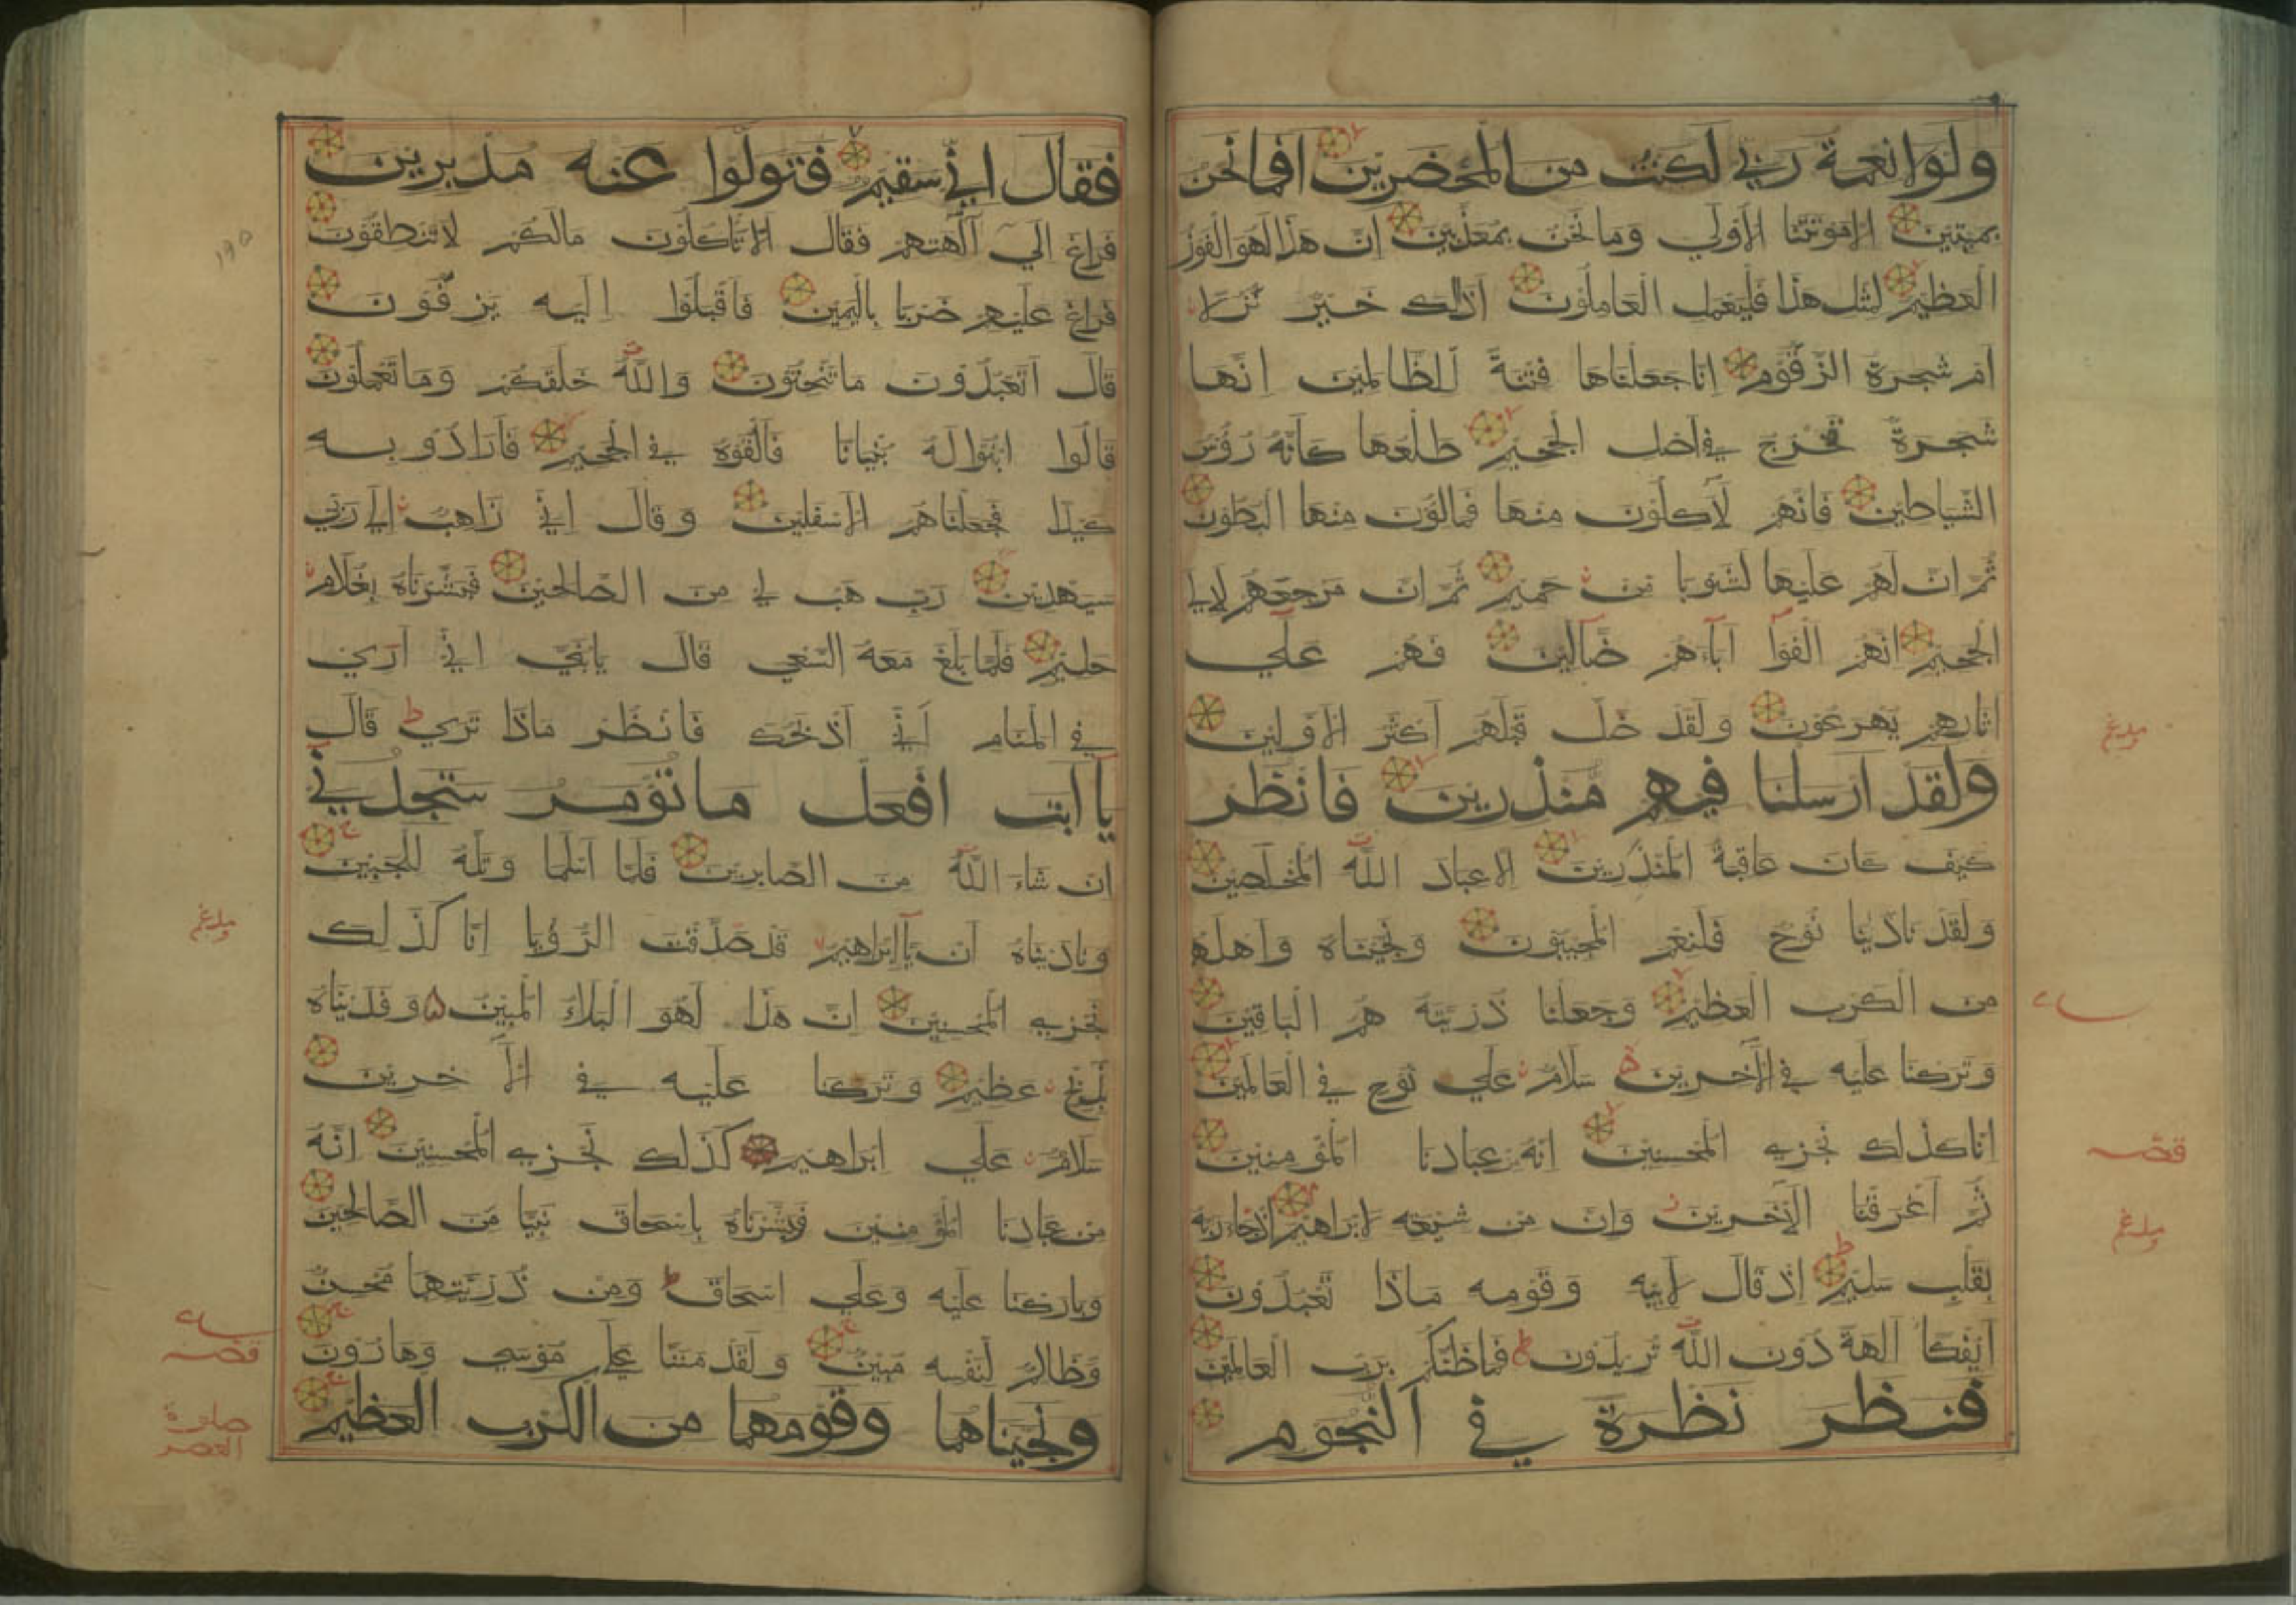 ولولا نعمة ربي لكنت من المحضرين افما نحن
بميتين الا موتتنا الأولي وما نحن بمعذبين ان هذا لهو الفوز
العظيم لمثل هذا فليعمل العاملون أذلك خير نزلا
ام شجرة الزقوم انا جعلناها فتنة للظالمين انها
شجرة تخرج في اصل الجحيم طلعها كأنه رؤس
الشياطين فانهم لآكلون منها فمالؤن منها البطون
ثم ان لهم عليها لشوبا من حميم ثم ان مرجعهم لإلي
الجحيم انهم الفوا آباءهم ضآلين فهم علي
اثارهم يهرعون ولقد ضل قبلهم أكثر الأولين
ولقد ارسلنا فيهم منذرين فانظر
كيف كان عاقبة المنذرين الا عباد الله المخلصين
ولقد نادينا نوح فلنعم المجيبون ونجيناه وأهله
من الكرب العظيم وجعلنا ذريته هم الباقين
وتركنا عليه في الآخرين سلام علي نوح في العالمين
انا كذلك نجزي المحسنين انه من عبادنا المؤمنين
ثم أغرقنا الآخرين وان من شيعته لابراهيم اذ جاء ربه
بقلب سليم إذ قال لابيه وقومه ماذا تعبدون
أئفكا آلهة دون الله تريدون فما ظنكم برب العالمين
فنظر نظرة في النجوم
فقال اني سقيم فتولوا عنه مدبرين
فراغ الي آلهتهم فقال الا تاكلون مالكم لا تنطقون
فراغ عليهم ضربا باليمين فأقبلوا اليه يزفون
قال أتعبدون ما تنحتون والله خلقكم وما تعملون
قالوا ابنوا له بنيانا فألقوه في الجحيم فأرادوا به
كيدا فجعلناهم الأسفلين وقال اني ذاهب الي ربي
سيهدين رب هب لي من الصالحين فبشرناه بغلام
حليم فلما بلغ معه السعي قال يابني اني أري
في المنام أني أذبحك فانظر ماذا تري قال
يا ابت افعل ما تؤمر ستجدني
ان شاء الله من الصابرين فلما اسلما وتله للجبين
وناديناه أن يا ابراهيم قد صدقت الرؤيا انا كذلك
نجزي المحسنين ان هذا لهو البلاء المبين وفديناه
بذبح عظيم وتركنا عليه في الآخرين
سلام علي ابراهيم كذلك نجزي المحسنين انه
من عبادنا المؤمنين وبشرناه باسحاق نبيا من الصالحين
وباركنا عليه وعلي اسحاق ومن ذريتهما محسن
وظالم لنفسه مبين ولقد مننا علي موسي وهارون
ونجيناهما وقومهما من الكرب العظيم
قصه
قصه
صلوة
العصر